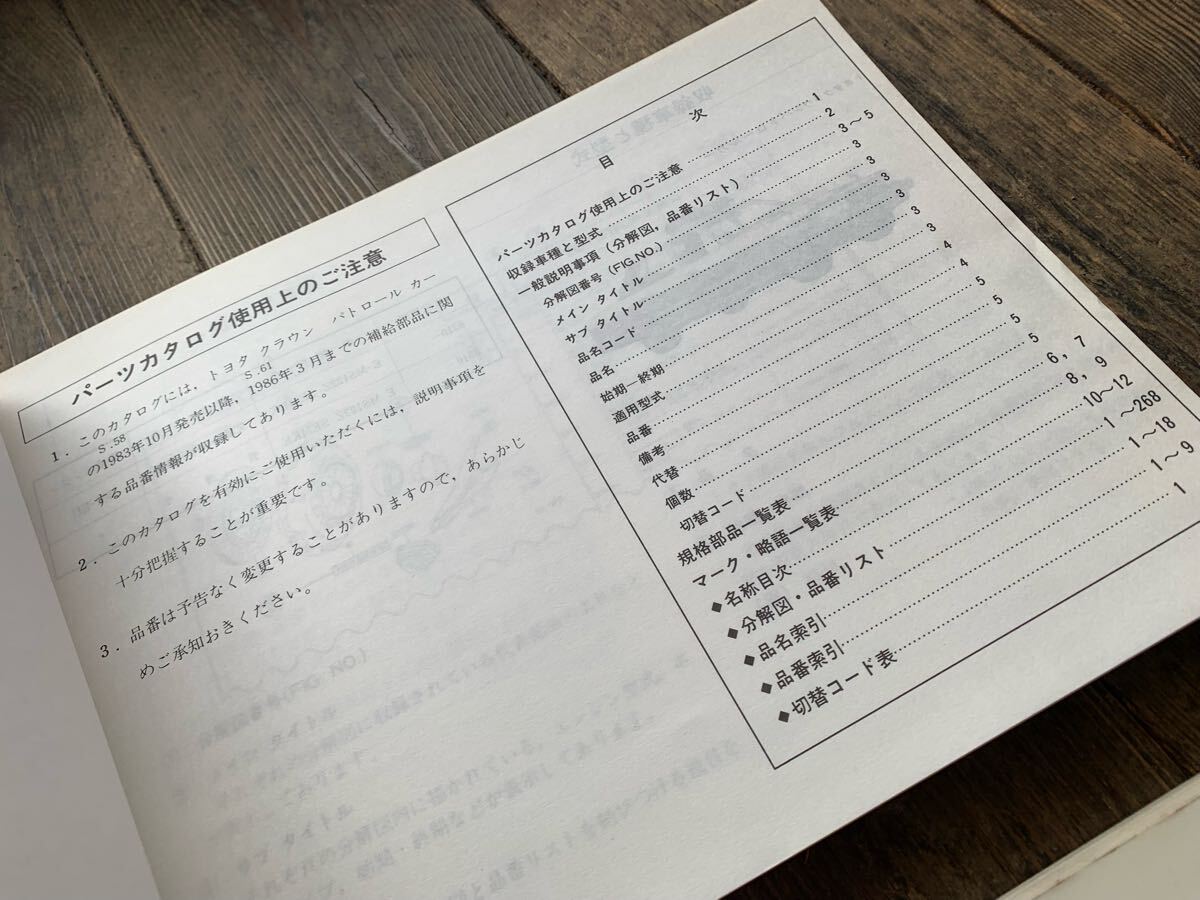 パーツカタログ使用上のご注意
1．このカタログには，トヨタ クラウン パトロール カー
S.58 S.61
の1983年10月発売以降，1986年3月までの補給部品に関
する品番情報が収録してあります。
2．このカタログを有効にご使用いただくには，説明事項を
十分把握することが重要です。
3．品番は予告なく変更することがありますので，あらかじ
めご承知おきください。
目 次
パーツカタログ使用上のご注意……1
収録車種と型式……2
一般説明事項（分解図，品番リスト）……3～5
分解図番号（FIG.NO.）……3
メイン タイトル……3
サブ タイトル……3
品名コード……3
品名……3
始期－終期……3
適用型式……4
品番……4
備考……5
代替……5
個数……5
切替コード……5
規格部品一覧表……6，7
マーク・略語一覧表……8，9
◆名称目次……10～12
◆分解図・品番リスト……1～268
◆品名索引……1～18
◆品番索引……1～9
◆切替コード表……1